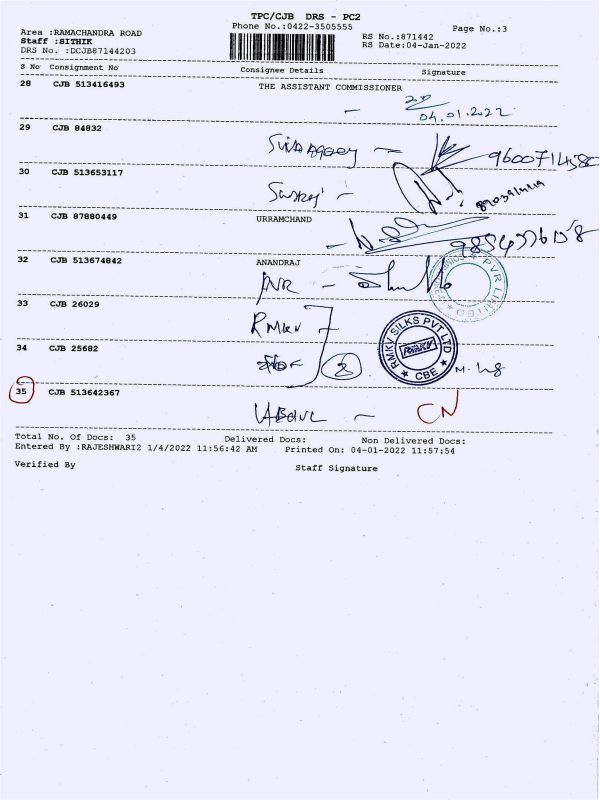 TPC/CJB DRS - PC2
Area :RAMACHANDRA ROAD Phone No.:0422-3505555 Page No.:3
Staff :SITHIK RS No.:871442
DRS No. :DCJB87144203 RS Date:04-Jan-2022
S No Consignment No Consignee Details Signature
28 CJB 513416493 THE ASSISTANT COMMISSIONER
04.01.2022
29 CJB 84832
30 CJB 513653117
31 CJB 87880449 URRAMCHAND
32 CJB 513674842 ANANDRAJ
PVR PVR LIMITED
33 CJB 26029
RMKV
RMKV SILKS PVT LTD
RMKV
CBE
34 CJB 25682
2
35 CJB 513642367
CN
Total No. Of Docs: 35 Delivered Docs: Non Delivered Docs:
Entered By :RAJESHWARI2 1/4/2022 11:56:42 AM Printed On: 04-01-2022 11:57:54
Verified By Staff Signature